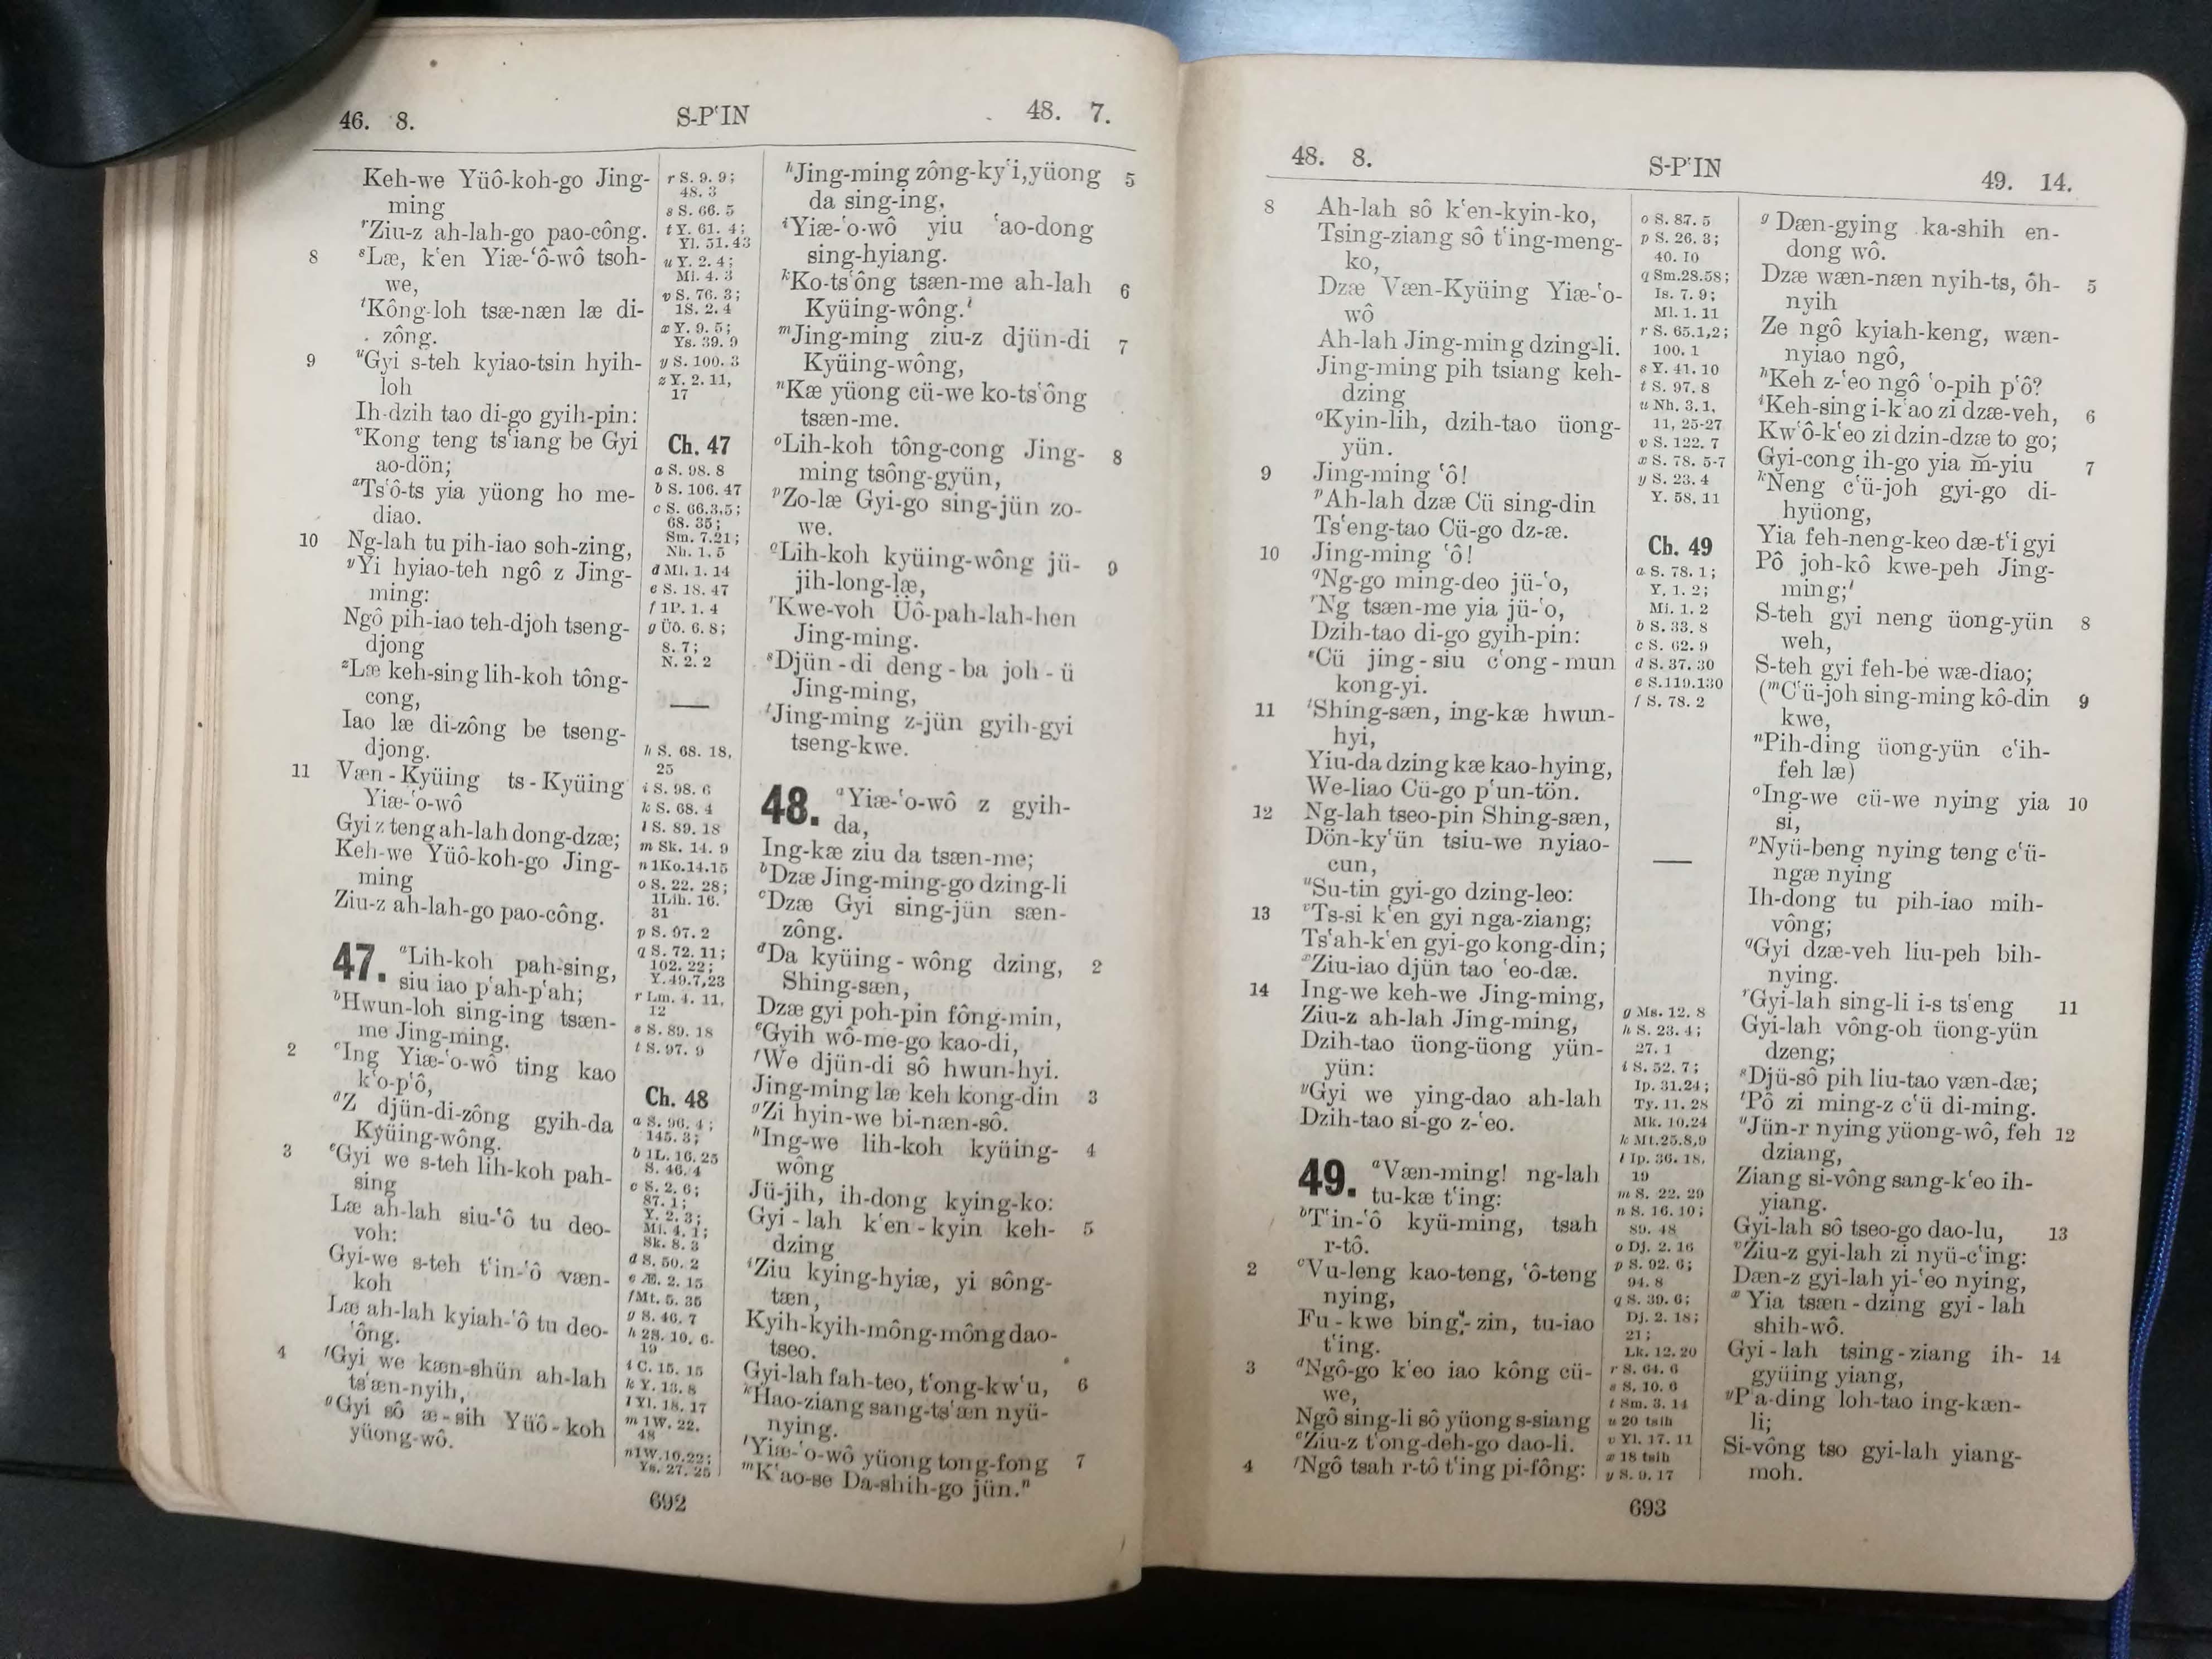 46. 8. S-PʻIN 48. 7.
Keh-we Yüô-koh-go Jing-
ming
rZiu-z ah-lah-go pao-công.
8 sLæ, kʻen Yiæ-ʻô-wô tsoh-
we,
tKông-loh tsæ-næn læ di-
zông.
9 uGyi s-teh kyiao-tsin hyih-
loh
Ih-dzih tao di-go gyih-pin:
vKong teng tsʻiang be Gyi
ao-dön;
xTsʻô-ts yia yüong ho me-
diao.
10 Ng-lah tu pih-iao soh-zing,
yYi hyiao-teh ngô z Jing-
ming:
Ngô pih-iao teh-djoh tseng-
djong
zLæ keh-sing lih-koh tông-
cong,
Iao læ di-zông be tseng-
djong.
11 Væn-Kyüing ts-Kyüing
Yiæ-ʻo-wô
Gyi z teng ah-lah dong-dzæ;
Keh-we Yüô-koh-go Jing-
ming
Ziu-z ah-lah-go pao-công.
47. aLih-koh pah-sing,
siu iao pʻah-pʻah;
bHwun-loh sing-ing tsæn-
me Jing-ming.
2 cIng Yiæ-ʻo-wô ting kao
kʻo-pʻô,
dZ djün-di-zông gyih-da
Kyüing-wông.
3 eGyi we s-teh lih-koh pah-
sing
Læ ah-lah siu-ʻô tu deo-
voh:
Gyi-we s-teh tʻin-ʻô væn-
koh
Læ ah-lah kyiah-ʻô tu deo-
ʻông.
4 fGyi we kæn-shün ah-lah
tsʻæn-nyih,
gGyi sô æ-sih Yüô-koh
yüong-wô.
r S. 9. 9;
48. 3
s S. 66. 5
t Y. 61. 4;
Yl. 51. 43
u Y. 2. 4;
Mi. 4. 3
v S. 76. 3;
1S. 2. 4
x Y. 9. 5;
Ys. 39. 9
y S. 100. 3
z Y. 2. 11,
17
Ch. 47
a S. 98. 8
b S. 106. 47
c S. 66.3,5;
68. 35;
Sm. 7.21;
Nh. 1. 5
d Ml. 1. 14
e S. 18. 47
f 1P. 1. 4
g Üô. 6. 8;
8. 7;
N. 2. 2
h S. 68. 18,
25
i S. 98. 6
k S. 68. 4
l S. 89. 18
m Sk. 14. 9
n 1Ko.14.15
o S. 22. 28;
1Lih. 16.
31
p S. 97. 2
q S. 72. 11;
102. 22;
Y.49.7,23
r Lm. 4. 11,
12
s S. 89. 18
t S. 97. 9
Ch. 48
a S. 96. 4;
145. 3;
b 1L. 16. 25
S. 46. 4
c S. 2. 6;
87. 1;
Y. 2. 3;
Mi. 4. 1;
Sk. 8. 3
d S. 50. 2
e Æ. 2. 15
f Mt. 5. 35
g S. 46. 7
h 2S. 10. 6-
19
i C. 15. 15
k Y. 13. 8
l Yl. 18. 17
m 1W. 22.
48
n 1W.10.22;
Ys. 27. 25
hJing-ming zông-kyʻi, yüong 5
da sing-ing,
iYiæ-ʻo-wô yiu ʻao-dong
sing-hyiang.
kKo-tsʻông tsæn-me ah-lah 6
Kyüing-wông.l
mJing-ming ziu-z djün-di 7
Kyüing-wông,
nKæ yüong cü-we ko-tsʻông
tsæn-me.
oLih-koh tông-cong Jing- 8
ming tsông-gyün,
pZo-læ Gyi-go sing-jün zo-
we.
qLih-koh kyüing-wông jü- 9
jih-long-læ,
rKwe-voh Üô-pah-lah-hen
Jing-ming.
sDjün-di deng-ba joh-ü
Jing-ming,
tJing-ming z-jün gyih-gyi
tseng-kwe.
48. aYiæ-ʻo-wô z gyih-
da,
Ing-kæ ziu da tsæn-me;
bDzæ Jing-ming-go dzing-li
cDzæ Gyi sing-jün sæn-
zông.
dDa kyüing-wông dzing, 2
Shing-sæn,
Dzæ gyi poh-pin fông-min,
eGyih wô-me-go kao-di,
fWe djün-di sô hwun-hyi.
Jing-ming læ keh kong-din 3
gZi hyin-we bi-næn-sô.
hIng-we lih-koh kyüing- 4
wông
Jü-jih, ih-dong kying-ko:
Gyi-lah kʻen-kyin keh- 5
dzing
iZiu kying-hyiæ, yi sông-
tæn,
Kyih-kyih-mông-mông dao-
tseo.
Gyi-lah fah-teo, tʻong-kwʻu, 6
kHao-ziang sang-tsʻæn nyü-
nying.
lYiæ-ʻo-wô yüong tong-fong 7
mKʻao-se Da-shih-go jün.n
692
48. 8. S-PʻIN 49. 14.
8 Ah-lah sô kʻen-kyin-ko,
Tsing-ziang sô tʻing-meng-
ko,
Dzæ Væn-Kyüing Yiæ-ʻo-
wô
Ah-lah Jing-ming dzing-li.
Jing-ming pih tsiang keh-
dzing
oKyin-lih, dzih-tao üong-
yün.
9 Jing-ming ʻô!
pAh-lah dzæ Cü sing-din
Tsʻeng-tao Cü-go dz-æ.
10 Jing-ming ʻô!
qNg-go ming-deo jü-ʻo,
rNg tsæn-me yia jü-ʻo,
Dzih-tao di-go gyih-pin:
sCü jing-siu cʻong-mun
kong-yi.
11 tShing-sæn, ing-kæ hwun-
hyi,
Yiu-da dzing kæ kao-hying,
We-liao Cü-go pʻun-tön.
12 Ng-lah tseo-pin Shing-sæn,
Dön-kyʻün tsiu-we nyiao-
cun,
uSu-tin gyi-go dzing-leo:
13 vTs-si kʻen gyi nga-ziang;
Tsʻah-kʻen gyi-go kong-din;
xZiu-iao djün tao ʻeo-dæ.
14 Ing-we keh-we Jing-ming,
Ziu-z ah-lah Jing-ming,
Dzih-tao üong-üong yün-
yün:
yGyi we ying-dao ah-lah
Dzih-tao si-go z-ʻeo.
49. aVæn-ming! ng-lah
tu-kæ tʻing:
bTʻin-ʻô kyü-ming, tsah
r-tô.
2 cVu-leng kao-teng, ʻô-teng
nying,
Fu-kwe bing-zin, tu-iao
tʻing.
3 dNgô-go kʻeo iao kông cü-
we,
Ngô sing-li sô yüong s-siang
eZiu-z tʻong-deh-go dao-li.
4 fNgô tsah r-tô tʻing pi-fông:
o S. 87. 5
p S. 26. 3;
40. 10
q Sm.28.58;
Is. 7. 9;
Ml. 1. 11
r S. 65.1,2;
100. 1
s Y. 41. 10
t S. 97. 8
u Nh. 3. 1,
11, 25-27
v S. 122. 7
x S. 78. 5-7
y S. 23. 4
Y. 58. 11
Ch. 49
a S. 78. 1;
Y. 1. 2;
Mi. 1. 2
b S. 33. 8
c S. 62. 9
d S. 37. 30
e S.119.130
f S. 78. 2
g Ms. 12. 8
h S. 23. 4;
27. 1
i S. 52. 7;
Ip. 31.24;
Ty. 11. 28
Mk. 10.24
k Mt.25.8,9
l Ip. 36. 18,
19
m S. 22. 29
n S. 16. 10;
89. 48
o Dj. 2. 16
p S. 92. 6;
94. 8
q S. 39. 6;
Dj. 2. 18;
21;
Lk. 12. 20
r S. 64. 6
s S. 10. 6
t Sm. 3. 14
u 20 tsih
v Yl. 17. 11
x 18 tsih
y S. 9. 17
gDæn-gying ka-shih en-
dong wô.
Dzæ wæn-næn nyih-ts, ôh- 5
nyih
Ze ngô kyiah-keng, wæn-
nyiao ngô,
hKeh z-ʻeo ngô ʻo-pih pʻô?
iKeh-sing i-kʻao zi dzæ-veh, 6
Kwʻô-kʻeo zi dzin-dzæ to go;
Gyi-cong ih-go yia m̆-yiu 7
kNeng cʻü-joh gyi-go di-
hyüong,
Yia feh-neng-keo dæ-tʻi gyi
Pô joh-kô kwe-peh Jing-
ming;l
S-teh gyi neng üong-yün 8
weh,
S-teh gyi feh-be wæ-diao;
(mCʻü-joh sing-ming kô-din 9
kwe,
nPih-ding üong-yün cʻih-
feh læ)
oIng-we cü-we nying yia 10
si,
pNyü-beng nying teng cʻü-
ngæ nying
Ih-dong tu pih-iao mih-
vông;
qGyi dzæ-veh liu-peh bih-
nying.
rGyi-lah sing-li i-s tsʻeng 11
Gyi-lah vông-oh üong-yün
dzeng;
sDjü-sô pih liu-tao væn-dæ;
tPô zi ming-z cʻü di-ming.
uJün-r nying yüong-wô, feh 12
dziang,
Ziang si-vông sang-kʻeo ih-
yiang.
Gyi-lah sô tseo-go dao-lu, 13
vZiu-z gyi-lah zi nyü-cʻing:
Dæn-z gyi-lah yi-ʻeo nying,
xYia tsæn-dzing gyi-lah
shih-wô.
Gyi-lah tsing-ziang ih- 14
gyüing yiang,
yPʻa-ding loh-tao ing-kæn-
li;
Si-vông tso gyi-lah yiang-
moh.
693